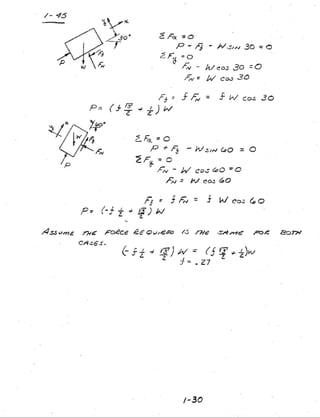 1-45
y
x
30°
P
W
Ff
FN
ΣFx = 0
P - Ff - W SIN 30 = 0
ΣFy = 0
FN - W cos 30 = 0
FN = W cos 30
Ff = f FN = f W cos 30
P = (f √3/2 + 1/2) W
y
x
60°
W
Ff
FN
P
ΣFx = 0
P + Ff - W SIN 60 = 0
ΣFy = 0
FN - W cos 60 = 0
FN = W cos 60
Ff = f FN = f W cos 60
P = (-f 1/2 + √3/2) W
ASSUME THE FORCE REQUIRED IS THE SAME FOR BOTH
CASES.
(-f 1/2 + √3/2) W = (f √3/2 + 1/2) W
f = .27
1-30